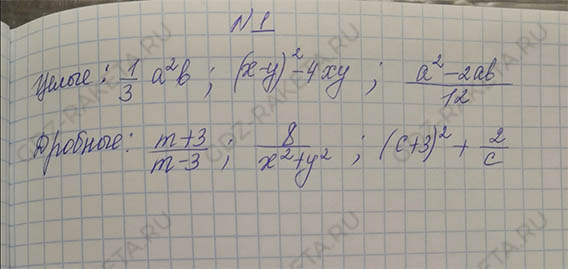 №1
Целые: 1/3 a²b ; (x-y)²-4xy ; a²-2ab/12
Дробные: m+3/m-3 ; 8/x²+y² ; (c+3)² + 2/c
GDZ-RAKETA.RU